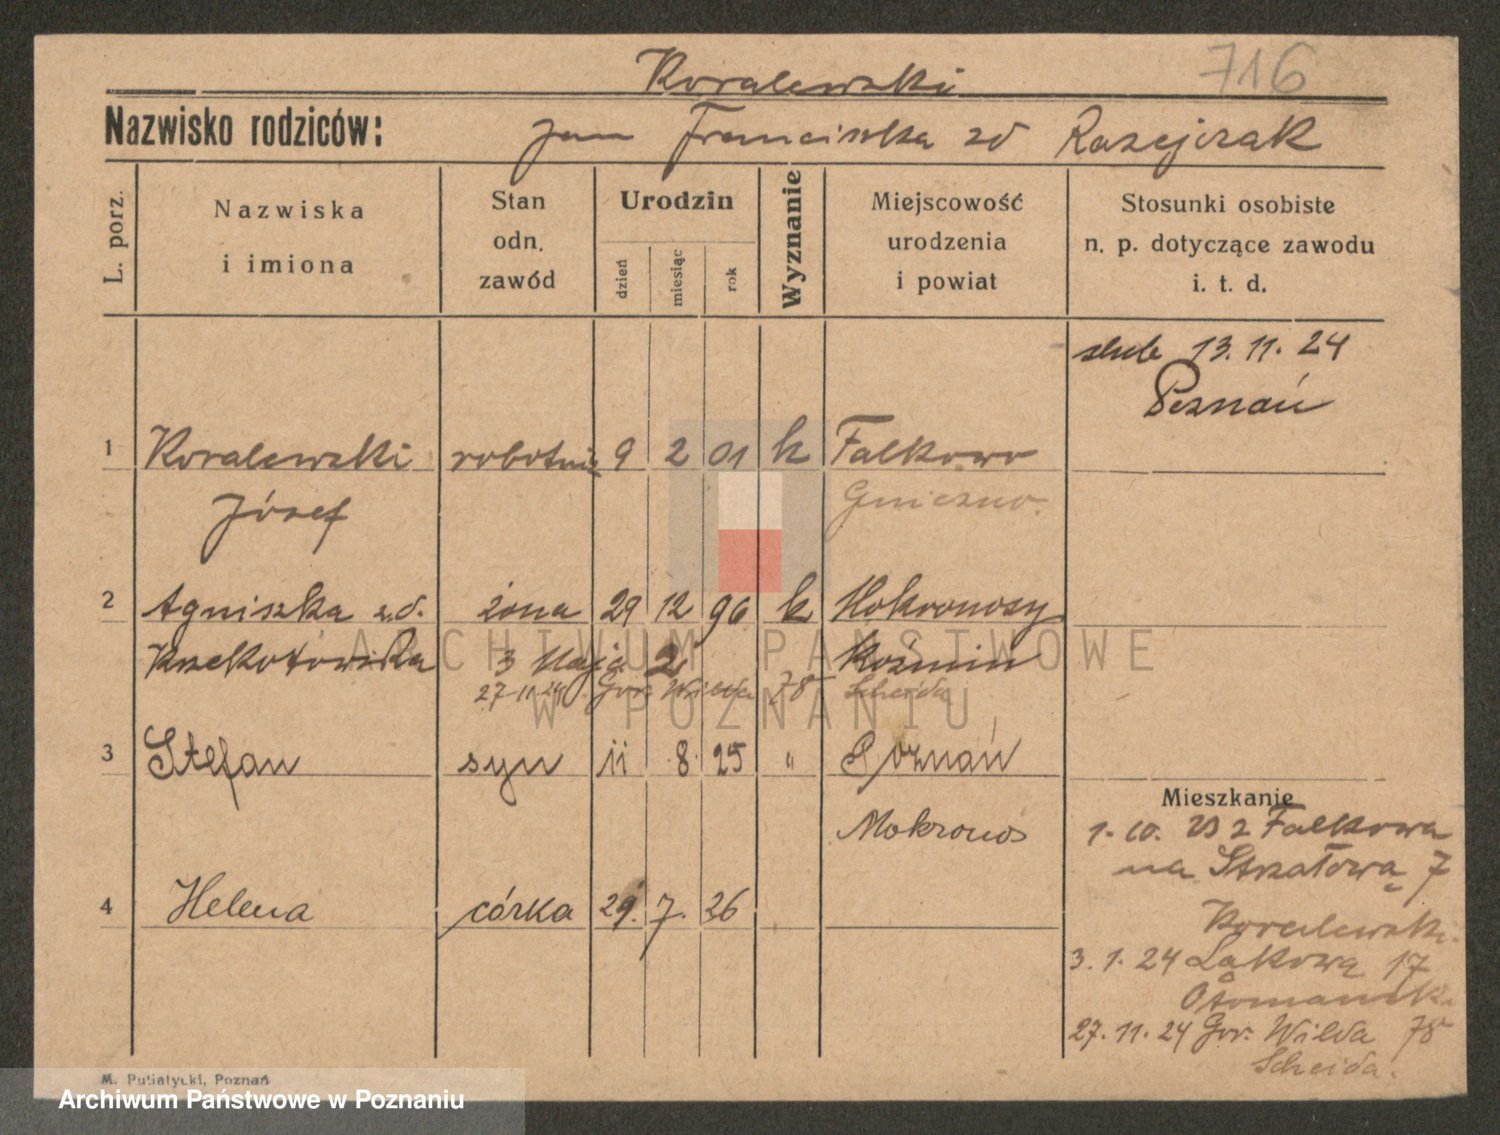 Koralewski 716
Nazwisko rodziców: Jan Franciszka zd Ratajczak
L. porz.
Nazwiska
i imiona
Stan
odn.
zawód
Urodzin
dzień
miesiąc
rok
Wyznanie
Miejscowość
urodzenia
i powiat
Stosunki osobiste
n. p. dotyczące zawodu
i. t. d.
ślub 13.11.24
Poznań
1 Koralewski robotnik 9 2 01 k Fałkowo
Józef Gniezno.
2 Agnieszka z.d. żona 29 12 96 k Mokronosy
3 Maja 2 Koźmin
27-11-24 Gór. Wilda 78 Scheida
3 Stefan syn 11 8. 25 " Poznań
Mieszkanie
Mokronos
4 Helena córka 29. 7. 26
1. 10. 23 z Fałkowa
na Strzałową 7
Koralewski.
3. 1. 24 Łąkowa 17
27. 11. 24 Gór. Wilda 78
Scheida.
M. Putiatycki, Poznań
ARCHIWUM PAŃSTWOWE
W POZNANIU
Archiwum Państwowe w Poznaniu